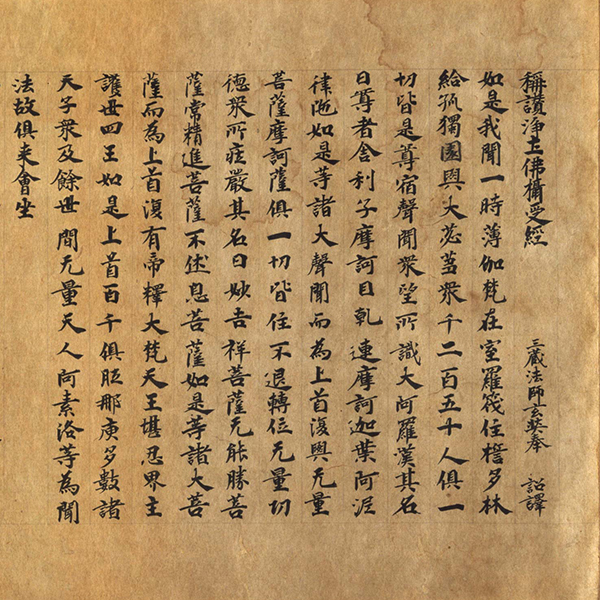 稱讃淨土佛攝受經 三藏法師玄奘奉 詔譯
如是我聞一時薄伽梵在室羅筏住誓多林
給孤獨園與大苾蒭衆千二百五十人俱一
切皆是尊宿聲聞衆望所識大阿羅漢其名
曰尊者舍利子摩訶目乹連摩訶迦葉阿泥
律陁如是等諸大聲聞而為上首復與无量
菩薩摩訶薩俱一切皆住不退轉位无量功
德衆所莊嚴其名曰妙吉祥菩薩无能勝菩
薩常精進菩薩不休息菩薩如是等諸大菩
薩而為上首復有帝釋大梵天王堪忍界主
護世四王如是上首百千俱胝那庾多數諸
天子衆及餘世間无量天人阿素洛等為聞
法故俱来會坐